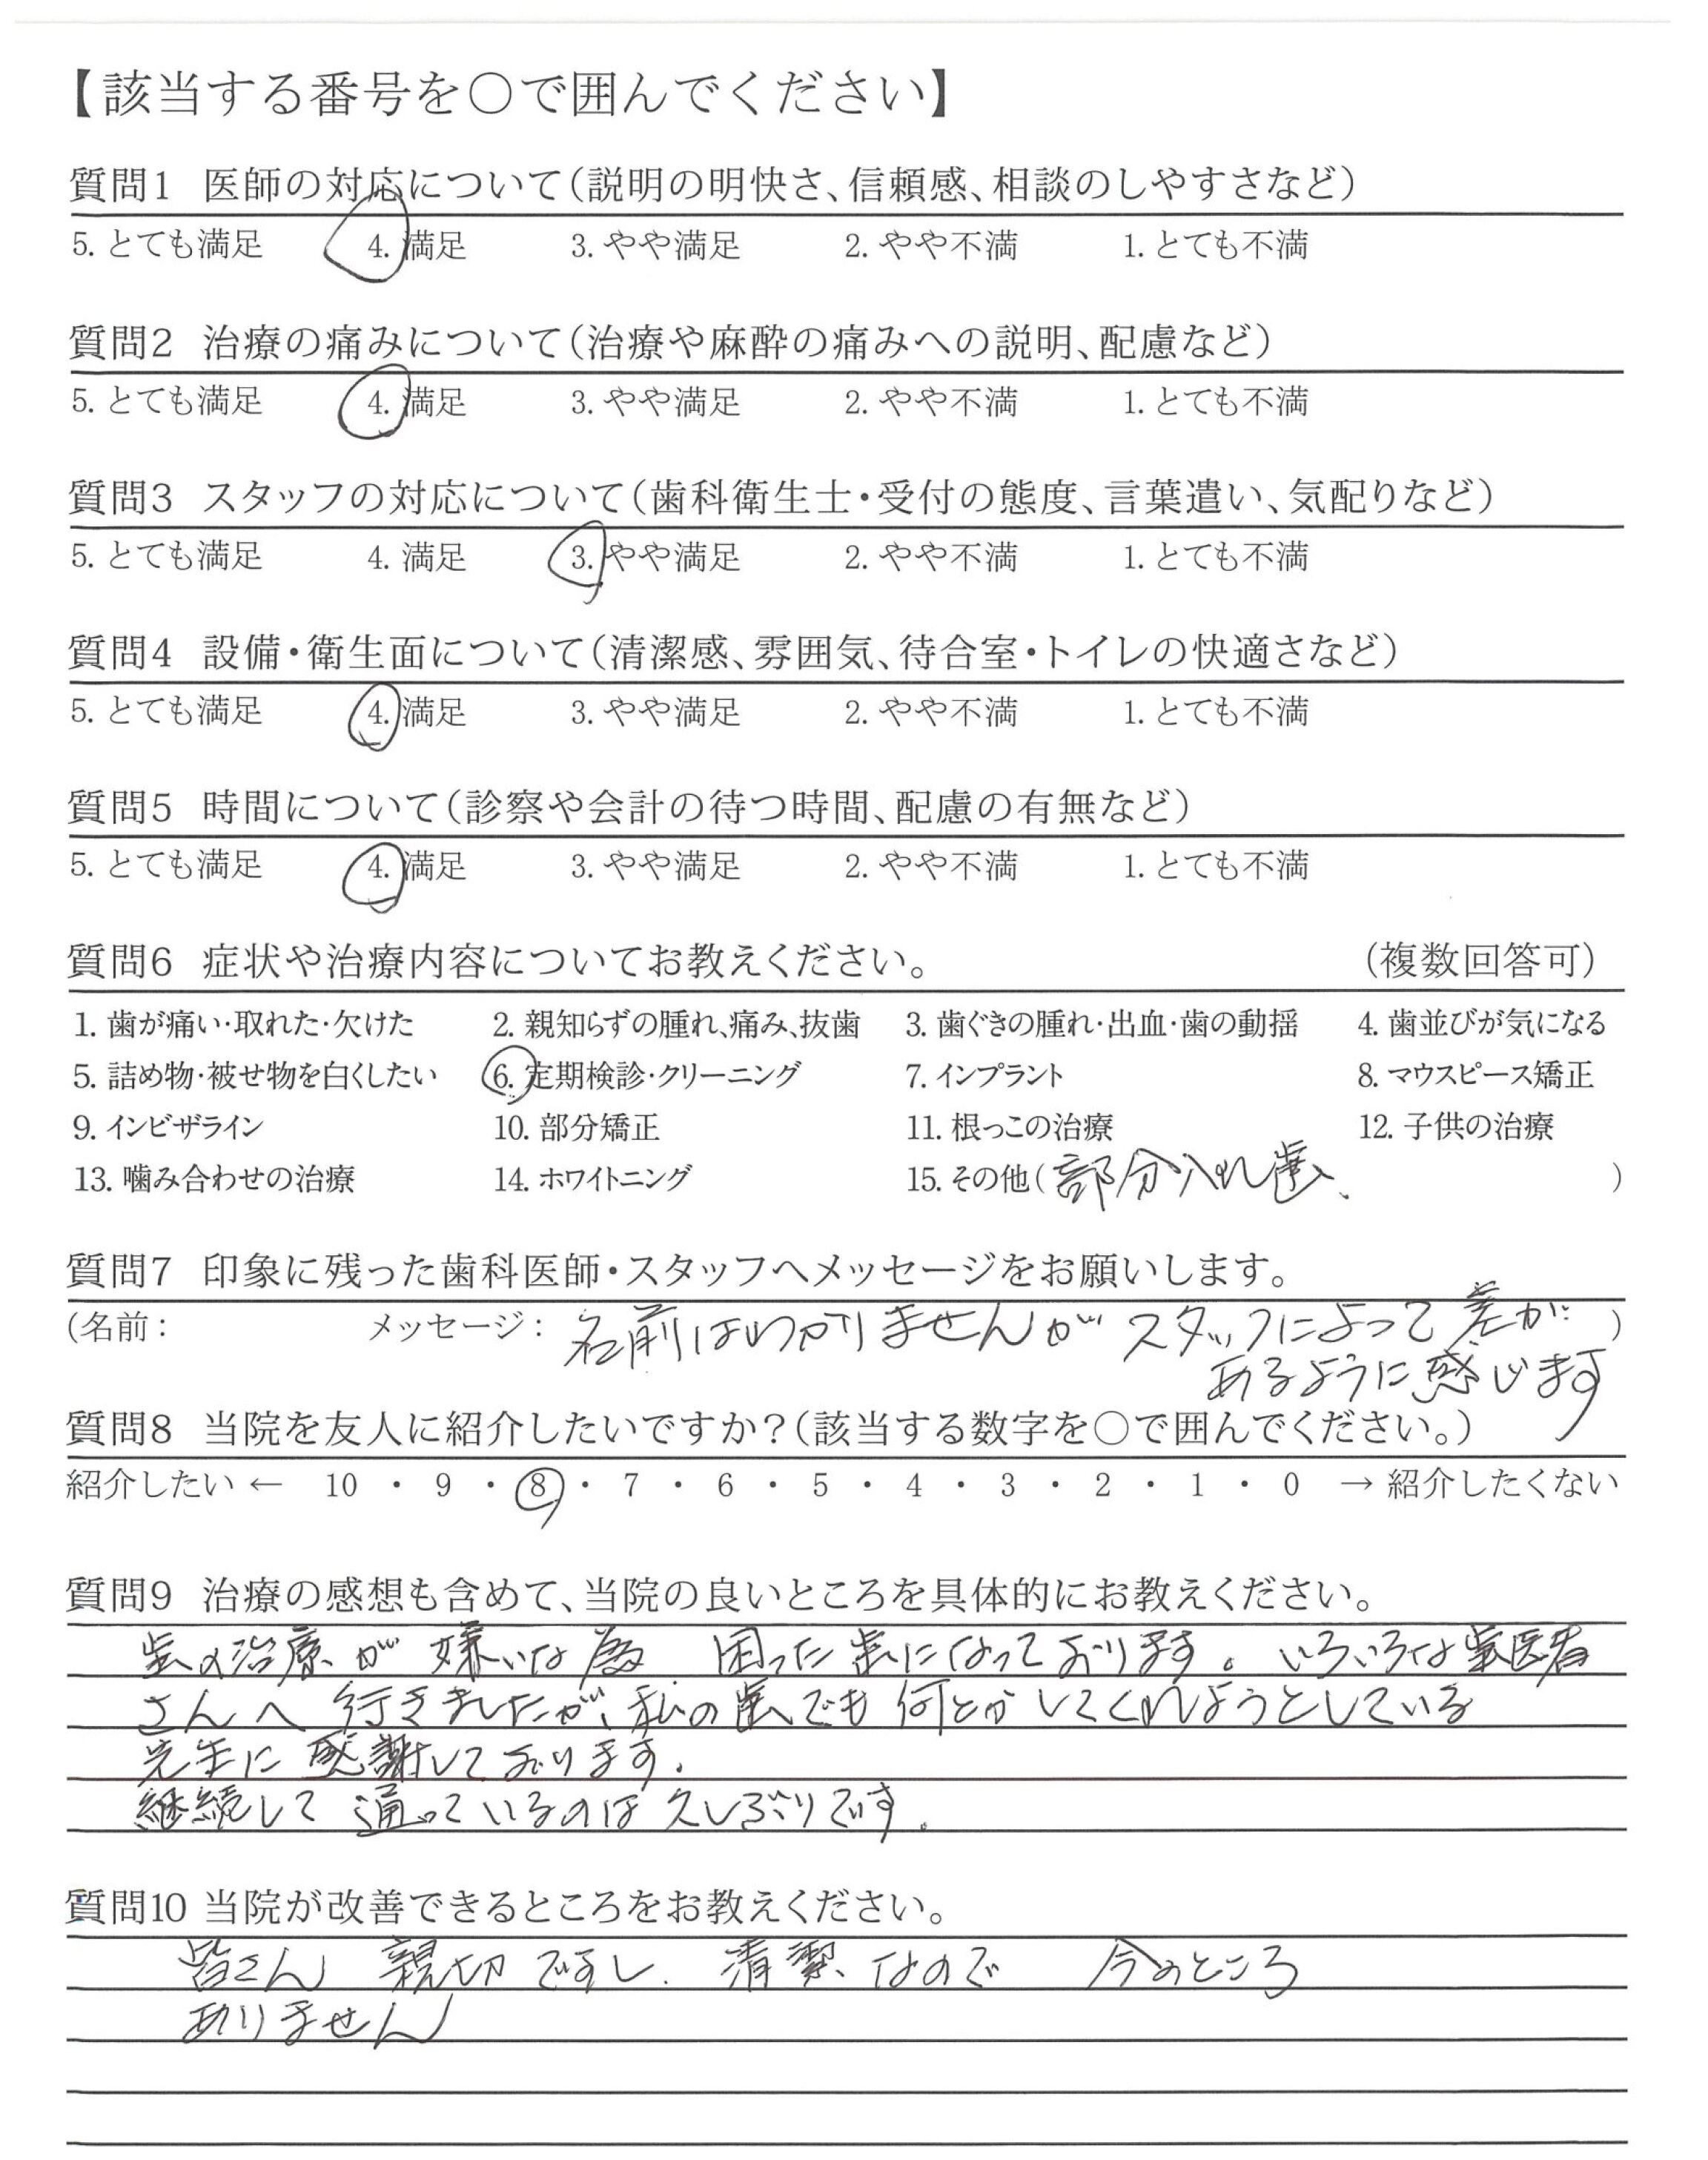 【該当する番号を〇で囲んでください】
質問1 医師の対応について(説明の明快さ、信頼感、相談のしやすさなど)
5. とても満足 4. 満足 3. やや満足 2. やや不満 1. とても不満
質問2 治療の痛みについて(治療や麻酔の痛みへの説明、配慮など)
5. とても満足 4. 満足 3. やや満足 2. やや不満 1. とても不満
質問3 スタッフの対応について(歯科衛生士・受付の態度、言葉遣い、気配りなど)
5. とても満足 4. 満足 3. やや満足 2. やや不満 1. とても不満
質問4 設備・衛生面について(清潔感、雰囲気、待合室・トイレの快適さなど)
5. とても満足 4. 満足 3. やや満足 2. やや不満 1. とても不満
質問5 時間について(診察や会計の待つ時間、配慮の有無など)
5. とても満足 4. 満足 3. やや満足 2. やや不満 1. とても不満
質問6 症状や治療内容についてお教えください。 (複数回答可)
1. 歯が痛い・取れた・欠けた 2. 親知らずの腫れ、痛み、抜歯 3. 歯ぐきの腫れ・出血・歯の動揺 4. 歯並びが気になる
5. 詰め物・被せ物を白くしたい 6. 定期検診・クリーニング 7. インプラント 8. マウスピース矯正
9. インビザライン 10. 部分矯正 11. 根っこの治療 12. 子供の治療
13. 噛み合わせの治療 14. ホワイトニング 15. その他(部分入れ歯、)
質問7 印象に残った歯科医師・スタッフへメッセージをお願いします。
(名前: メッセージ: 名前はわかりませんが スタッフによって差が)
あるように感じます
質問8 当院を友人に紹介したいですか?(該当する数字を〇で囲んでください。)
紹介したい ← 10 ・ 9 ・ 8 ・ 7 ・ 6 ・ 5 ・ 4 ・ 3 ・ 2 ・ 1 ・ 0 → 紹介したくない
質問9 治療の感想も含めて、当院の良いところを具体的にお教えください。
歯の治療が 嫌いな為 困った歯になっております。いろいろな歯医者
さんへ 行きましたが、私の歯でも 何とかしてくれようとしている
先生に 感謝しております.
継続して 通っているのは久しぶりです。
質問10 当院が改善できるところをお教えください。
皆さん 親切ですし、清潔なので 今のところ
ありません